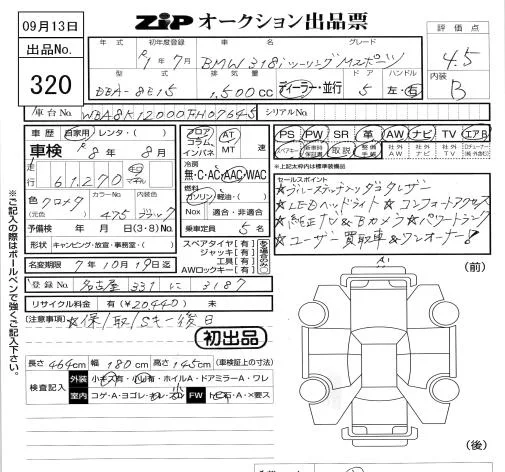 09月13日
出品No.
320
ZIP オークション出品票
年式 初年度登録 車名 グレード
R1年7月 BMW 318iツーリング Mスポーツ
型式 排気量 ドア ハンドル
DBA-8E15 1,500cc ディーラー・並行 5 左・右
評価点
4.5
内装
B
車台No. WBA8K12000FH07645 シリアルNo.
車歴 自家用・レンタ・( )
車検 R8年8月
走行 61,270
色 クロメタ
(元色)
カラーNo. 475
内装色 ブラック
予備検 年 月 日(3・8)No.
形状 キャンピング・放宣・事務室・( )
名変期限 7年10月19日迄
登録No. 名古屋 331 に 3187
リサイクル料金 有(¥20,440) 未
フロア コラム インパネ
AT MT 速
冷房
無・C・AC・AAC・WAC
燃料
ガソリン・軽油・( )
Nox 適合・非適合
乗車定員 5名
スペアタイヤ[有]
ジャッキ[有]
工具[有]
AWロックキー[有]
PS PW SR 革 AW ナビ TV エアB
スペアキー 取説 社外AW 社外ナビ 社外TV
※上記太枠内は標準装備品
セールスポイント
★LEDヘッドライト ★コンフォートアクセス
★純正TV&Bカメラ ★パワートランク
★ユーザー買取車&ワンオーナー!
(注意事項) ★保/取/Sキー後日
初出品
長さ 464cm 幅 180cm 高さ 145cm (車検証上の寸法)
検査記入
外装 小キズ有・小凹有・ホイルA・ドアミラーA・ワレ
室内 コゲ・A・ヨゴレ FW トビ石・A・×要ス
A1
(前)
(後)
※ご記入の際はボールペンで強くご記入下さい。